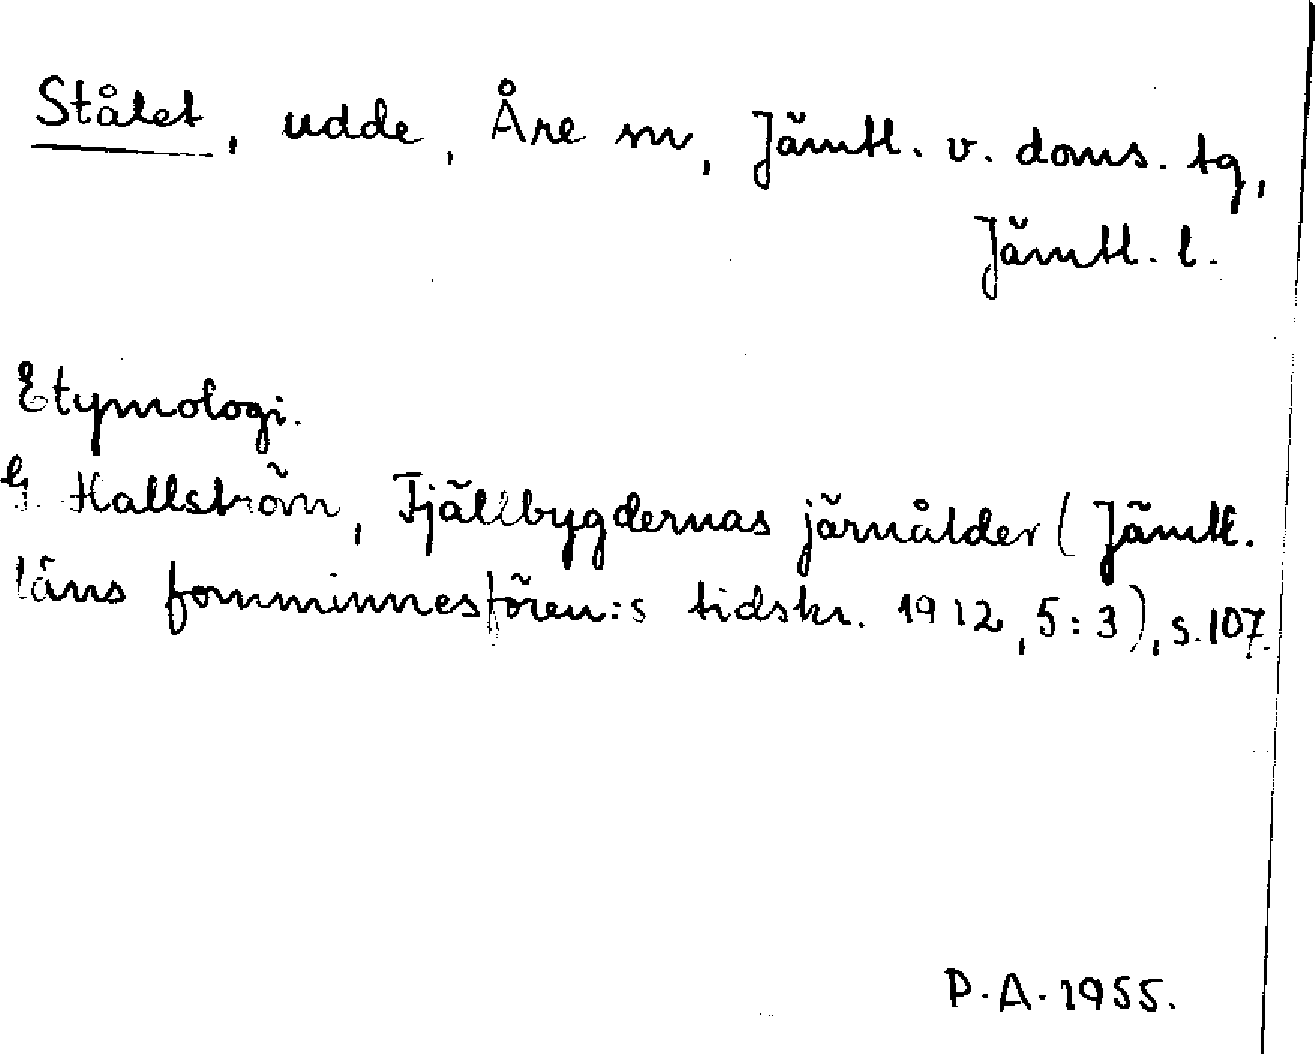 Stålet, udde, Åre sn, Jämtl. v. doms. tg,
Jämtl. l.
Etymologi.
G. Hallström, Fjällbygdernas järnålder (Jämtl.
läns fornminnesfören:s tidskr. 1912, 5:3), s. 107.
P.A. 1955.